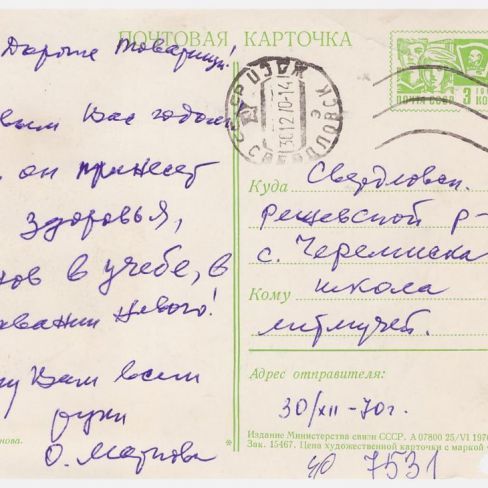 ПОЧТОВАЯ КАРТОЧКА
Дорогие товарищи!
вым Вас годом
он принесет
здоровья,
хов в учебе, в
нового!
Вам всем
руки
О. Маркова
нова.
*
ПОЧТА СССР 3 КО
СССР
СВЕРДЛОВСК
30 12 70-14
Куда Свердловск.
Решевской р-
с. Черемиска
школа
Кому
литмузей.
Адрес отправителя:
30/XII-70г.
Издание Министерства связи СССР. А 07800 25/VI 197
Зак. 15467. Цена художественной карточки с маркой
7531